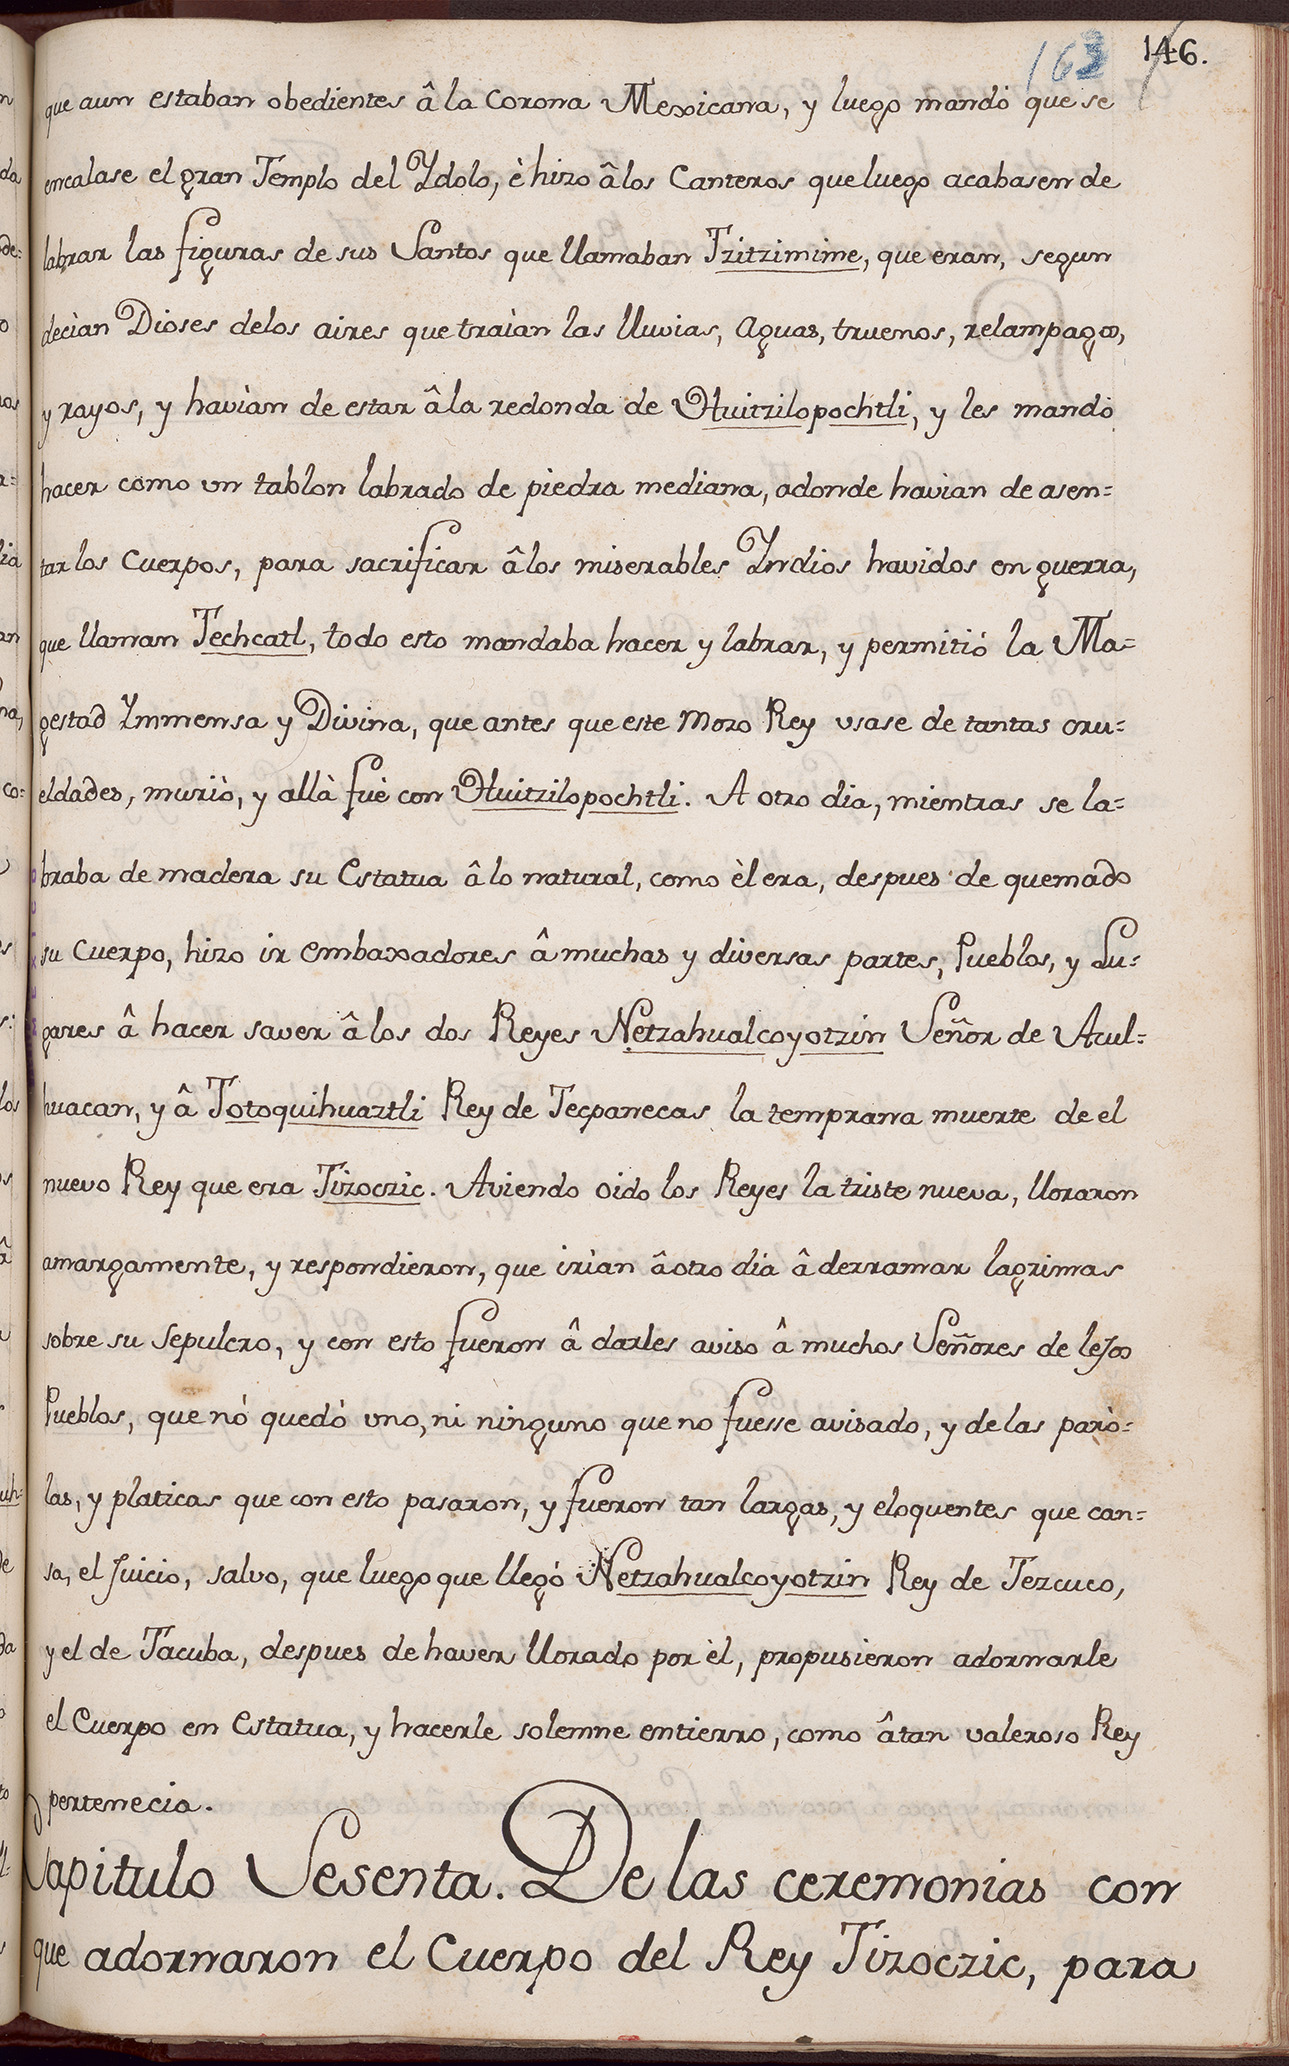 163 146.
que aun estaban obedientes â la Corona Mexicana, y luego mandó que se
encalase el gran Templo del Ydolo, è hizo â los Canteros que luego acabasen de
labrar las figuras de sus Santos que llamaban Tzitzimime, que eran, segun
decìan Dioses delos aires que traìan las lluvias, Aguas, truenos, relampagos,
y rayos, y havìan de estar â la redonda de Huitzilopochtli, y les mandò
hacer como un tablon labrado de piedra mediana, adonde havian de asen=
tar los Cuerpos, para sacrificar â los miserables Yndios havidos en guerra,
que llaman Techcatl, todo esto mandaba hacer y labrar, y permitió la Ma=
gestad Ymmensa y Divina, que antes que este Mozo Rey vsase de tantas cru=
eldades, muriò, y allà fuè con Huitzilopochtli. A otro dia, mientras se la=
braba de madera su Estatua â lo natural, como èl era, despues de quemado
su Cuerpo, hizo ir embaxadores â muchas y diversas partes, Pueblos, y Lu=
gares â hacer saver â los dos Reyes Netzahualcoyotzin Señor de Acul=
huacan, y â Totoquihuaztli Rey de Tecpanecas la temprana muerte de el
nuevo Rey que era Tizoczic. Aviendo oido los Reyes la triste nueva, lloraron
amargamente, y respondieron, que irìan â otro dia â derramar lagrimas
sobre su Sepulcro, y con esto fueron â darles aviso â muchos Señores de lejos
Pueblos, que nó quedó vno, ni ninguno que no fuesse avisado, y de las parò=
las, y platicas que con esto pasaron, y fueron tan largas, y eloquentes que can=
sa, el Juicio, salvo, que luego que llegó Netzahualcoyotzin Rey de Tezcuco,
y el de Tacuba, despues de haver llorado por èl, propusieron adornarle
el Cuerpo en Estatua, y hacerle solemne entierro, como â tan valeroso Rey
pertenecia.
Capitulo Sesenta. De las ceremonias con
que adornaron el Cuerpo del Rey Tizoczic, para